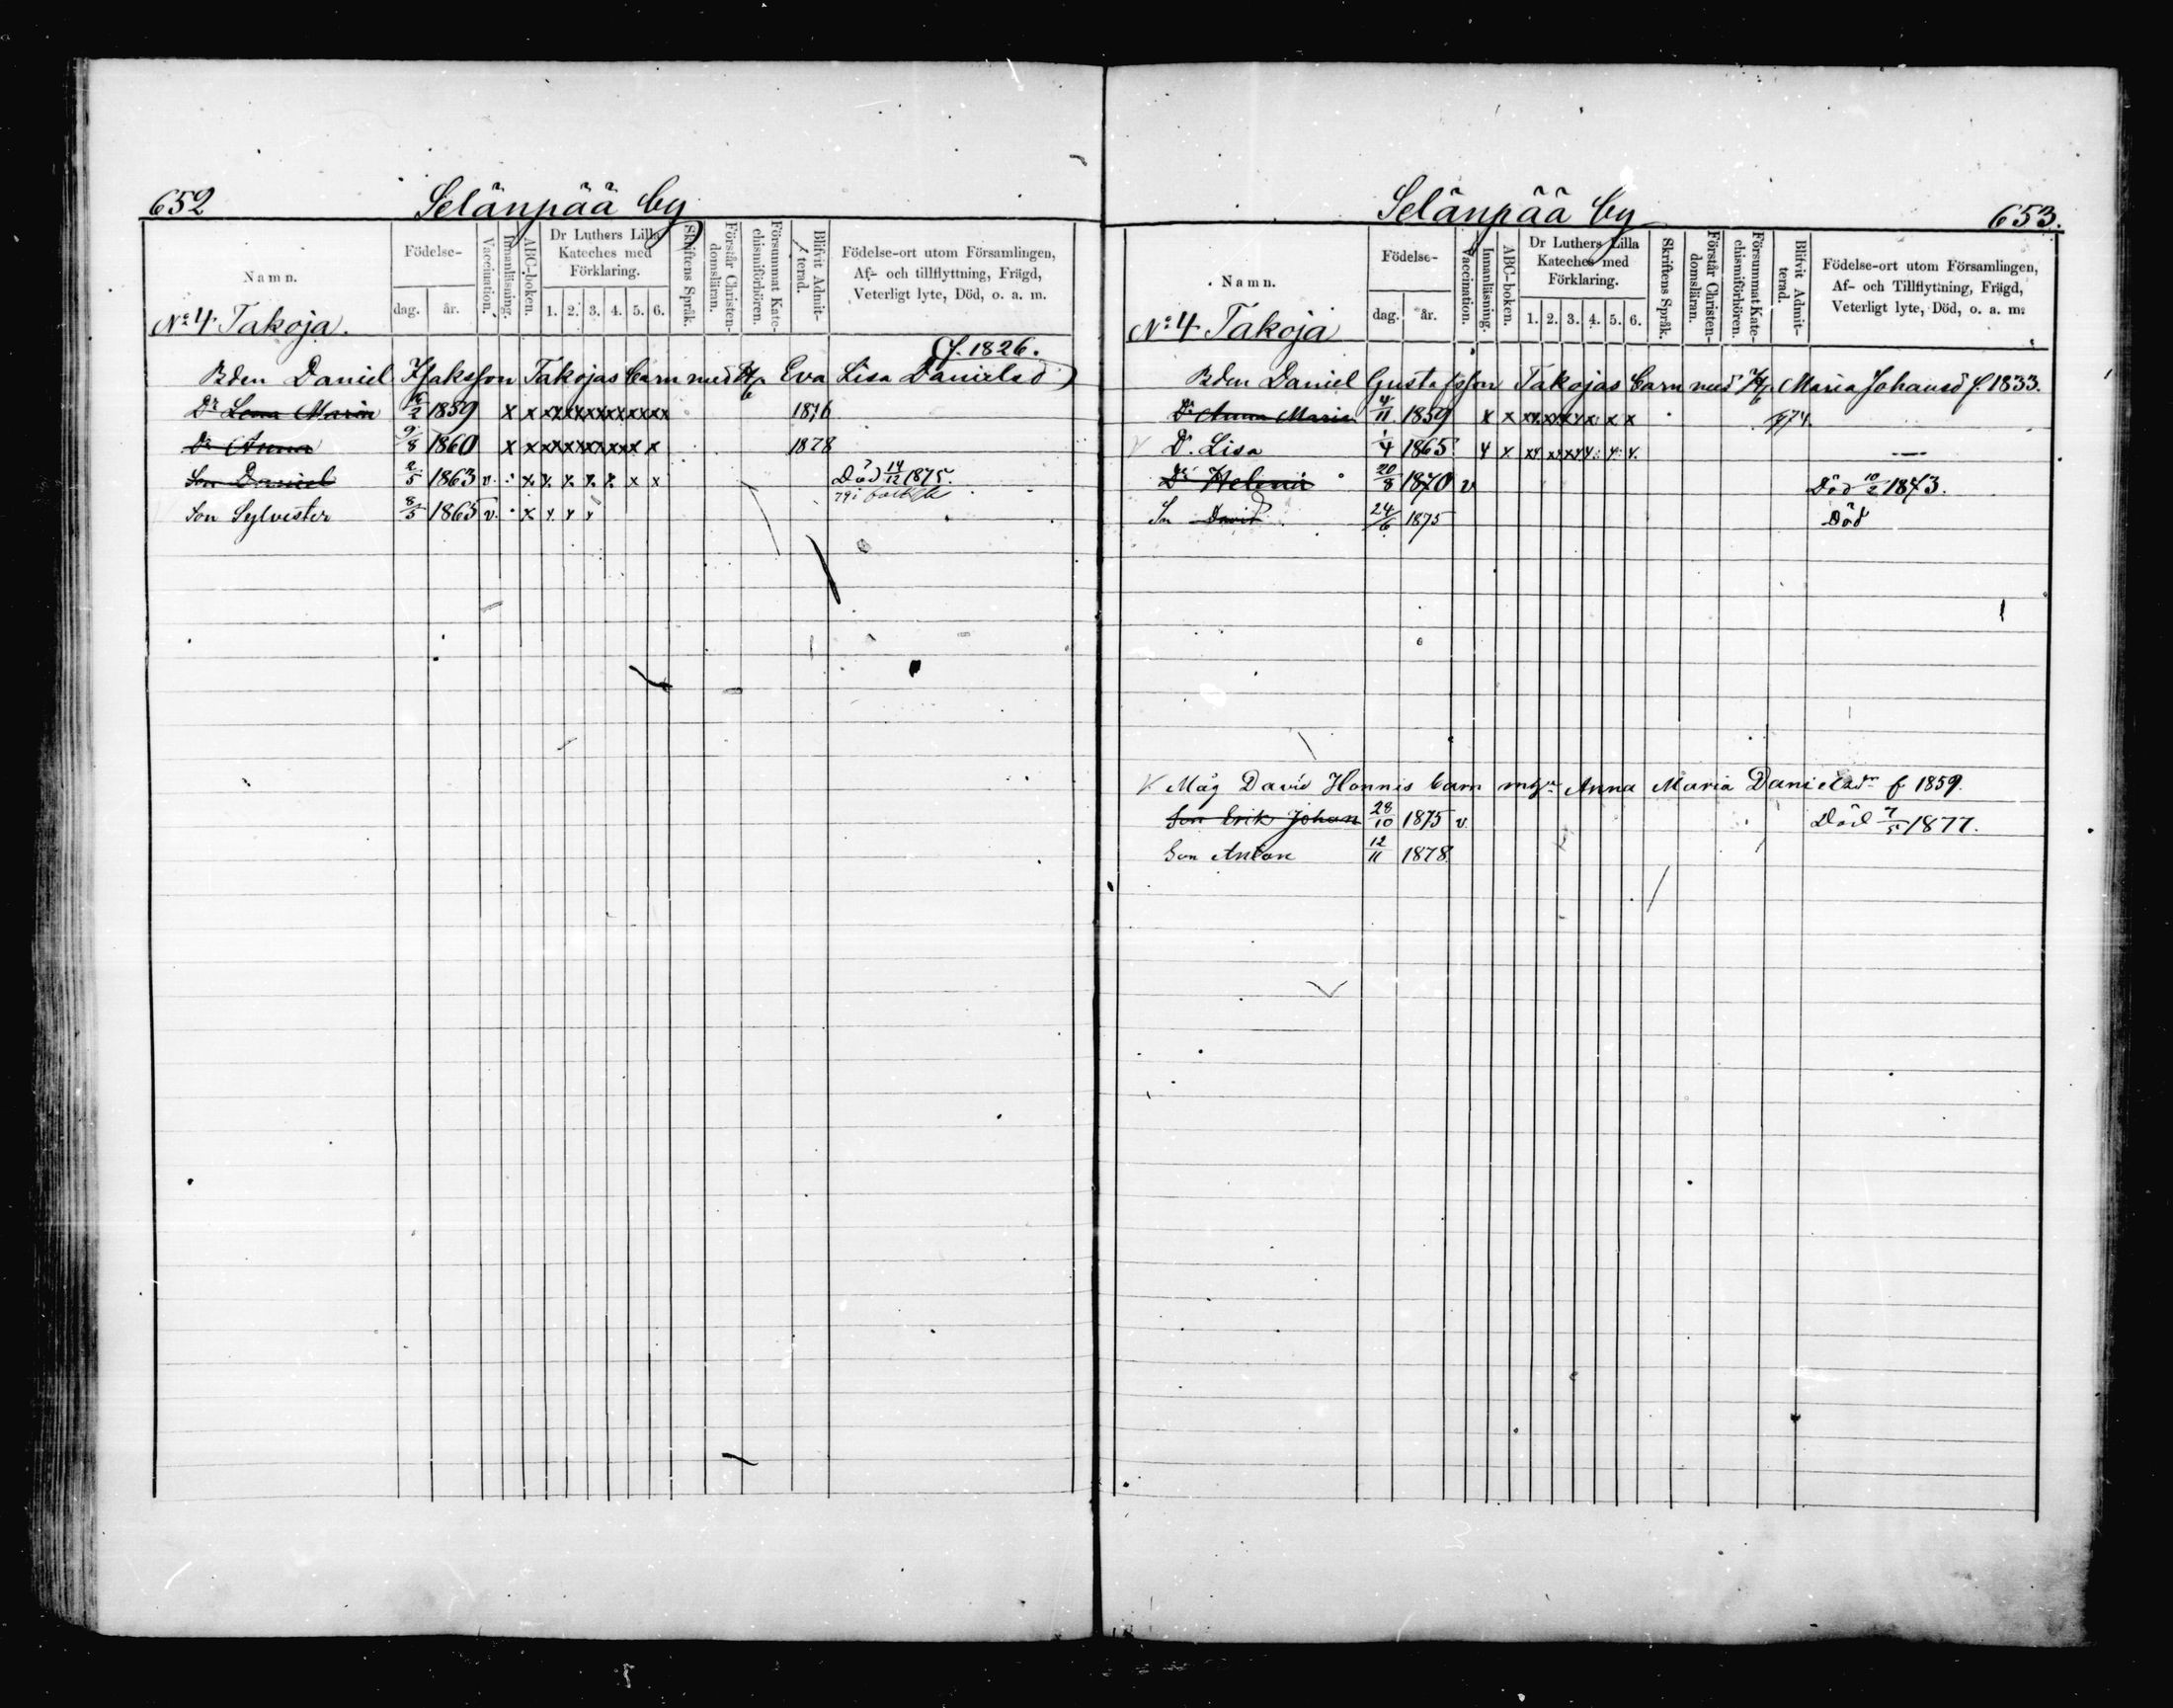 652 Selänpää by
Namn. Födelse- dag. år. Vaccination. Innanläsning. ABC-boken. Dr Luthers Lilla Kateches med Förklaring. 1. 2. 3. 4. 5. 6. Skriftens Språk. Förstår Christendomsläran. Försummat Katechismiförhören. Blifvit Admitterad. Födelse-ort utom Församlingen, Af- och tillflyttning, Frägd, Veterligt lyte, Död, o. a. m.
No 4 Takoja.
f. 1826.
Bden Daniel Isaksson Takojas barn med H Eva Lisa Danielsd
Dr Lena Maria 6/2 1859 x x x x x x x x x x x x 1876
Dr Anna 9/8 1860 x x x x x x x x x x 1878
Son Daniel 2/5 1863 v. x x x x x x x Död 14/12 1875.
Son Sylvester 8/5 1865 v. x x x x
Selänpää by 653.
Namn. Födelse- dag. år. Vaccination. Innanläsning. ABC-boken. Dr Luthers Lilla Kateches med Förklaring. 1. 2. 3. 4. 5. 6. Skriftens Språk. Förstår Christendomsläran. Försummat Katechismiförhören. Blifvit Admitterad. Födelse-ort utom Församlingen, Af- och Tillflyttning, Frägd, Veterligt lyte, Död, o. a. m.
No 4 Takoja
Bden Daniel Gustafsson Takojas barn med H Maria Johansd f. 1833.
Dr Anna Maria 4/11 1859 x x x x x x x x x x 74.
Dr. Lisa 1/4 1865 x x x x x x x x x
Dr Helena 20/8 1870 v Död 10/2 1873.
Sn David 24/6 1875 Död
Måg David Honnis barn m Anna Maria Danielsdr f 1859.
Son Erik Johan 28/10 1875 v. Död 7/5 1877.
Son Anton 12/11 1878.